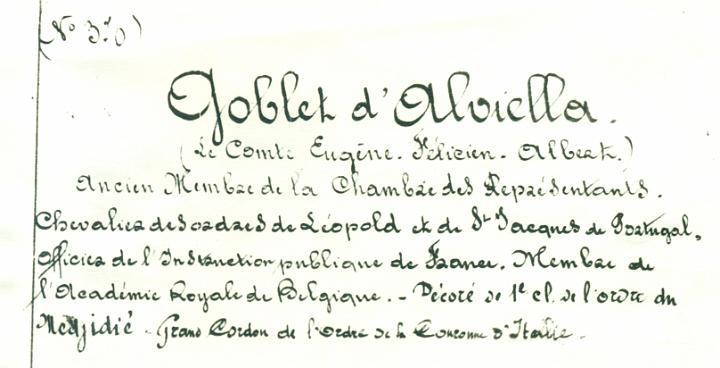 (No 370)
Goblet d'Alviella.
(Le Comte Eugène. Félicien. Albert.)
Ancien Membre de la Chambre des Représentants.
Chevalier des ordres de Léopold et de St Jacques de Portugal,
officier de l'Instruction publique de France. Membre de
l'Académie Royale de Belgique. – Décoré de 1e cl. de l'ordre du
Medjidié. Grand Cordon de l'Ordre de la Couronne d'Italie.